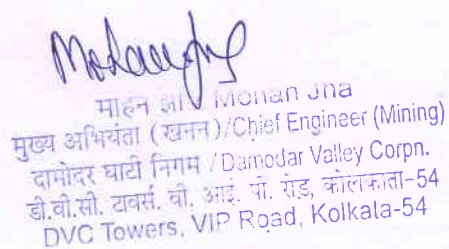 मोहन झा / Mohan Jha
मुख्य अभियंता (खनन)/Chief Engineer (Mining)
दामोदर घाटी निगम / Damodar Valley Corpn.
डी.वी.सी. टावर्स. वी. आई. पी. रोड़, कोलकाता-54
DVC Towers, VIP Road, Kolkata-54